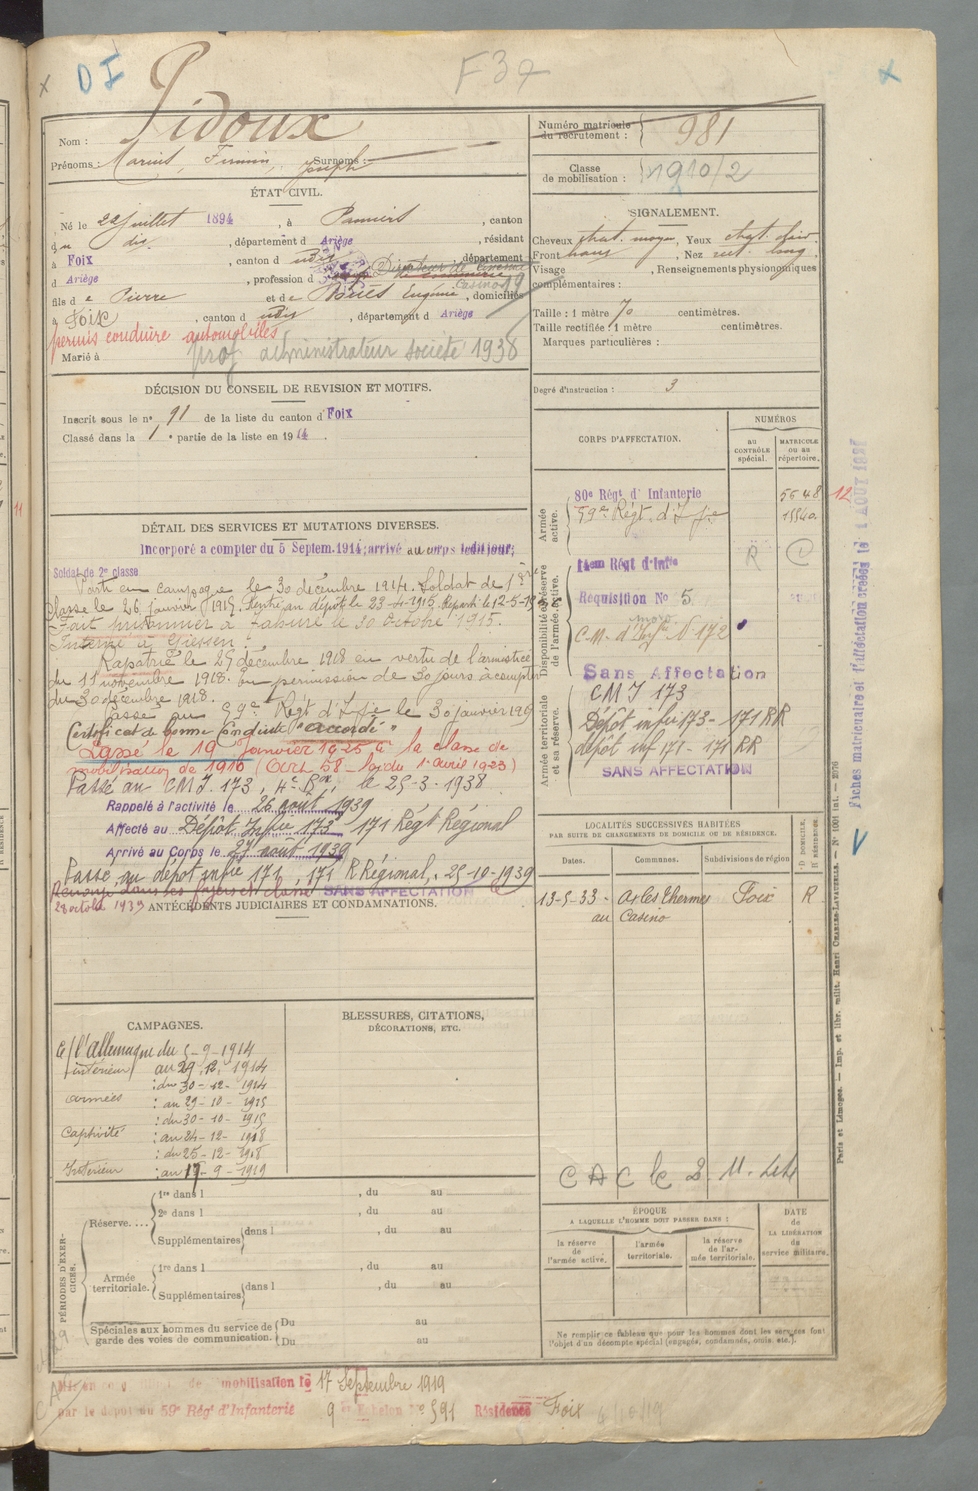 D I
F 37
Pidoux
Nom :
Prénoms : Marius, Firmin, Joseph Surnoms :
ÉTAT CIVIL.
Né le 22 juillet 1894, à Pamiers, canton
du dit, département d Ariège, résidant
à Foix, canton d udit, département
d Ariège, profession d Directeur de Casino
fils de Pierre et de Eugénie, domiciliés
à Foix, canton d udit, département d Ariège
permis conduire automobiles
Marié à
prof administrateur société 1938
DÉCISION DU CONSEIL DE REVISION ET MOTIFS.
Inscrit sous le n° 91 de la liste du canton d Foix
Classé dans la 1e partie de la liste en 1914.
DÉTAIL DES SERVICES ET MUTATIONS DIVERSES.
Incorporé a compter du 5 Septem. 1914; arrivé au corps ledit jour;
Soldat de 2e classe
Parti en campagne le 30 décembre 1914. Soldat de 1ère
classe le 26 janvier 1915. Rentré au dépôt le 23-4-1915. Reparti le 12-5-15
Fait prisonnier à Tahure le 30 octobre 1915.
Interné à Giessen.
Rapatrié le 25 décembre 1918 en vertu de l'armistice
du 11 novembre 1918. En permission de 30 jours à compter
du 30 décembre 1918.
Passé au 59e Régt d'Ifie le 30 janvier 1919
Certificat de bonne Conduite "accordé"
Passé le 19 Janvier 1925 à la classe de
mobilisation de 1910 (Art 58 - Loi du 1er avril 1923)
Passé au CMI 173, 4e Bon, le 25-3-1938
Rappelé à l'activité le 26 août 1939
Affecté au Dépôt Infie 173 171 Régt Régional
Arrivé au Corps le 27 août 1939
Passé au dépôt infie 171, 171 R Régional, 25-10-1939
Renvoyé dans ses foyers et classé SANS AFFECTATION
28 octobre 1939
ANTÉCÉDENTS JUDICIAIRES ET CONDAMNATIONS.
CAMPAGNES.
C/ l'allemagne du 5-9-1914
intérieur au 29.12.1914
: du 30-12-1914
armées : au 29-10-1915
: du 30-10-1915
Captivité : au 24-12-1918
: du 25-12-1918
Intérieur : au 17-9-1919
BLESSURES, CITATIONS,
DÉCORATIONS, ETC.
PÉRIODES D'EXERCICES.
Réserve....
1re dans l , du au
2e dans l , du au
Supplémentaires dans l , du au
Armée territoriale.
1re dans l , du au
Supplémentaires dans l , du au
Spéciales aux hommes du service de garde des voies de communication.
Du au
Du au
de mobilisation le 17 Septembre 1919
par le dépôt du 59e Rég' d'Infanterie 9e Echelon N° 591 Résidence Foix
Numéro matricule du recrutement : 981
Classe de mobilisation : 1910/2
SIGNALEMENT.
Cheveux chat. moyen, Yeux chat. clair
Front haut, Nez rect. long,
Visage , Renseignements physionomiques
complémentaires :
Taille : 1 mètre 70 centimètres.
Taille rectifiée : 1 mètre centimètres.
Marques particulières :
Degré d'instruction : 3
CORPS D'AFFECTATION.
NUMÉROS
AU CONTRÔLE spécial.
MATRICULE OU AU répertoire.
Armée active.
80e Régt d' Infanterie 5648
59e Régt. d'Ifie 15540
Disponibilité et réserve de l'armée active.
14em Régt d'Infie R
Requisition No 5
C-M- d'Infie N° 172
Sans Affectation
Armée territoriale et sa réserve.
CMI 173
Dépôt infie 173 - 171 RR
dépôt inf 171 - 171 RR
SANS AFFECTATION
12
LOCALITÉS SUCCESSIVES HABITÉES
PAR SUITE DE CHANGEMENTS DE DOMICILE OU DE RÉSIDENCE.
Dates. Communes. Subdivisions de région
D DOMICILE, R RÉSIDENCE.
13-5-33 - Ax les Thermes Foix R
au Casino
ÉPOQUE
A LAQUELLE L'HOMME DOIT PASSER DANS :
la réserve de l'armée active.
l'armée territoriale.
la réserve de l'armée territoriale.
DATE de LA LIBÉRATION du service militaire.
Ne remplir ce tableau que pour les hommes dont les services font
l'objet d'un décompte spécial (engagés, condamnés, omis, etc.).
Paris et Limoges. — Imp. et libr. milit. Henri CHARLES-LAVAUZELLE. — N° 1001 int. — 2076
Fiches matriculaire et d'affectation créées le